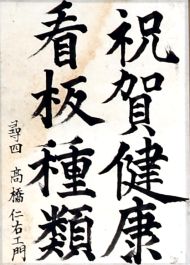 祝賀健康
看板種類
尋四 高橋仁右エ門